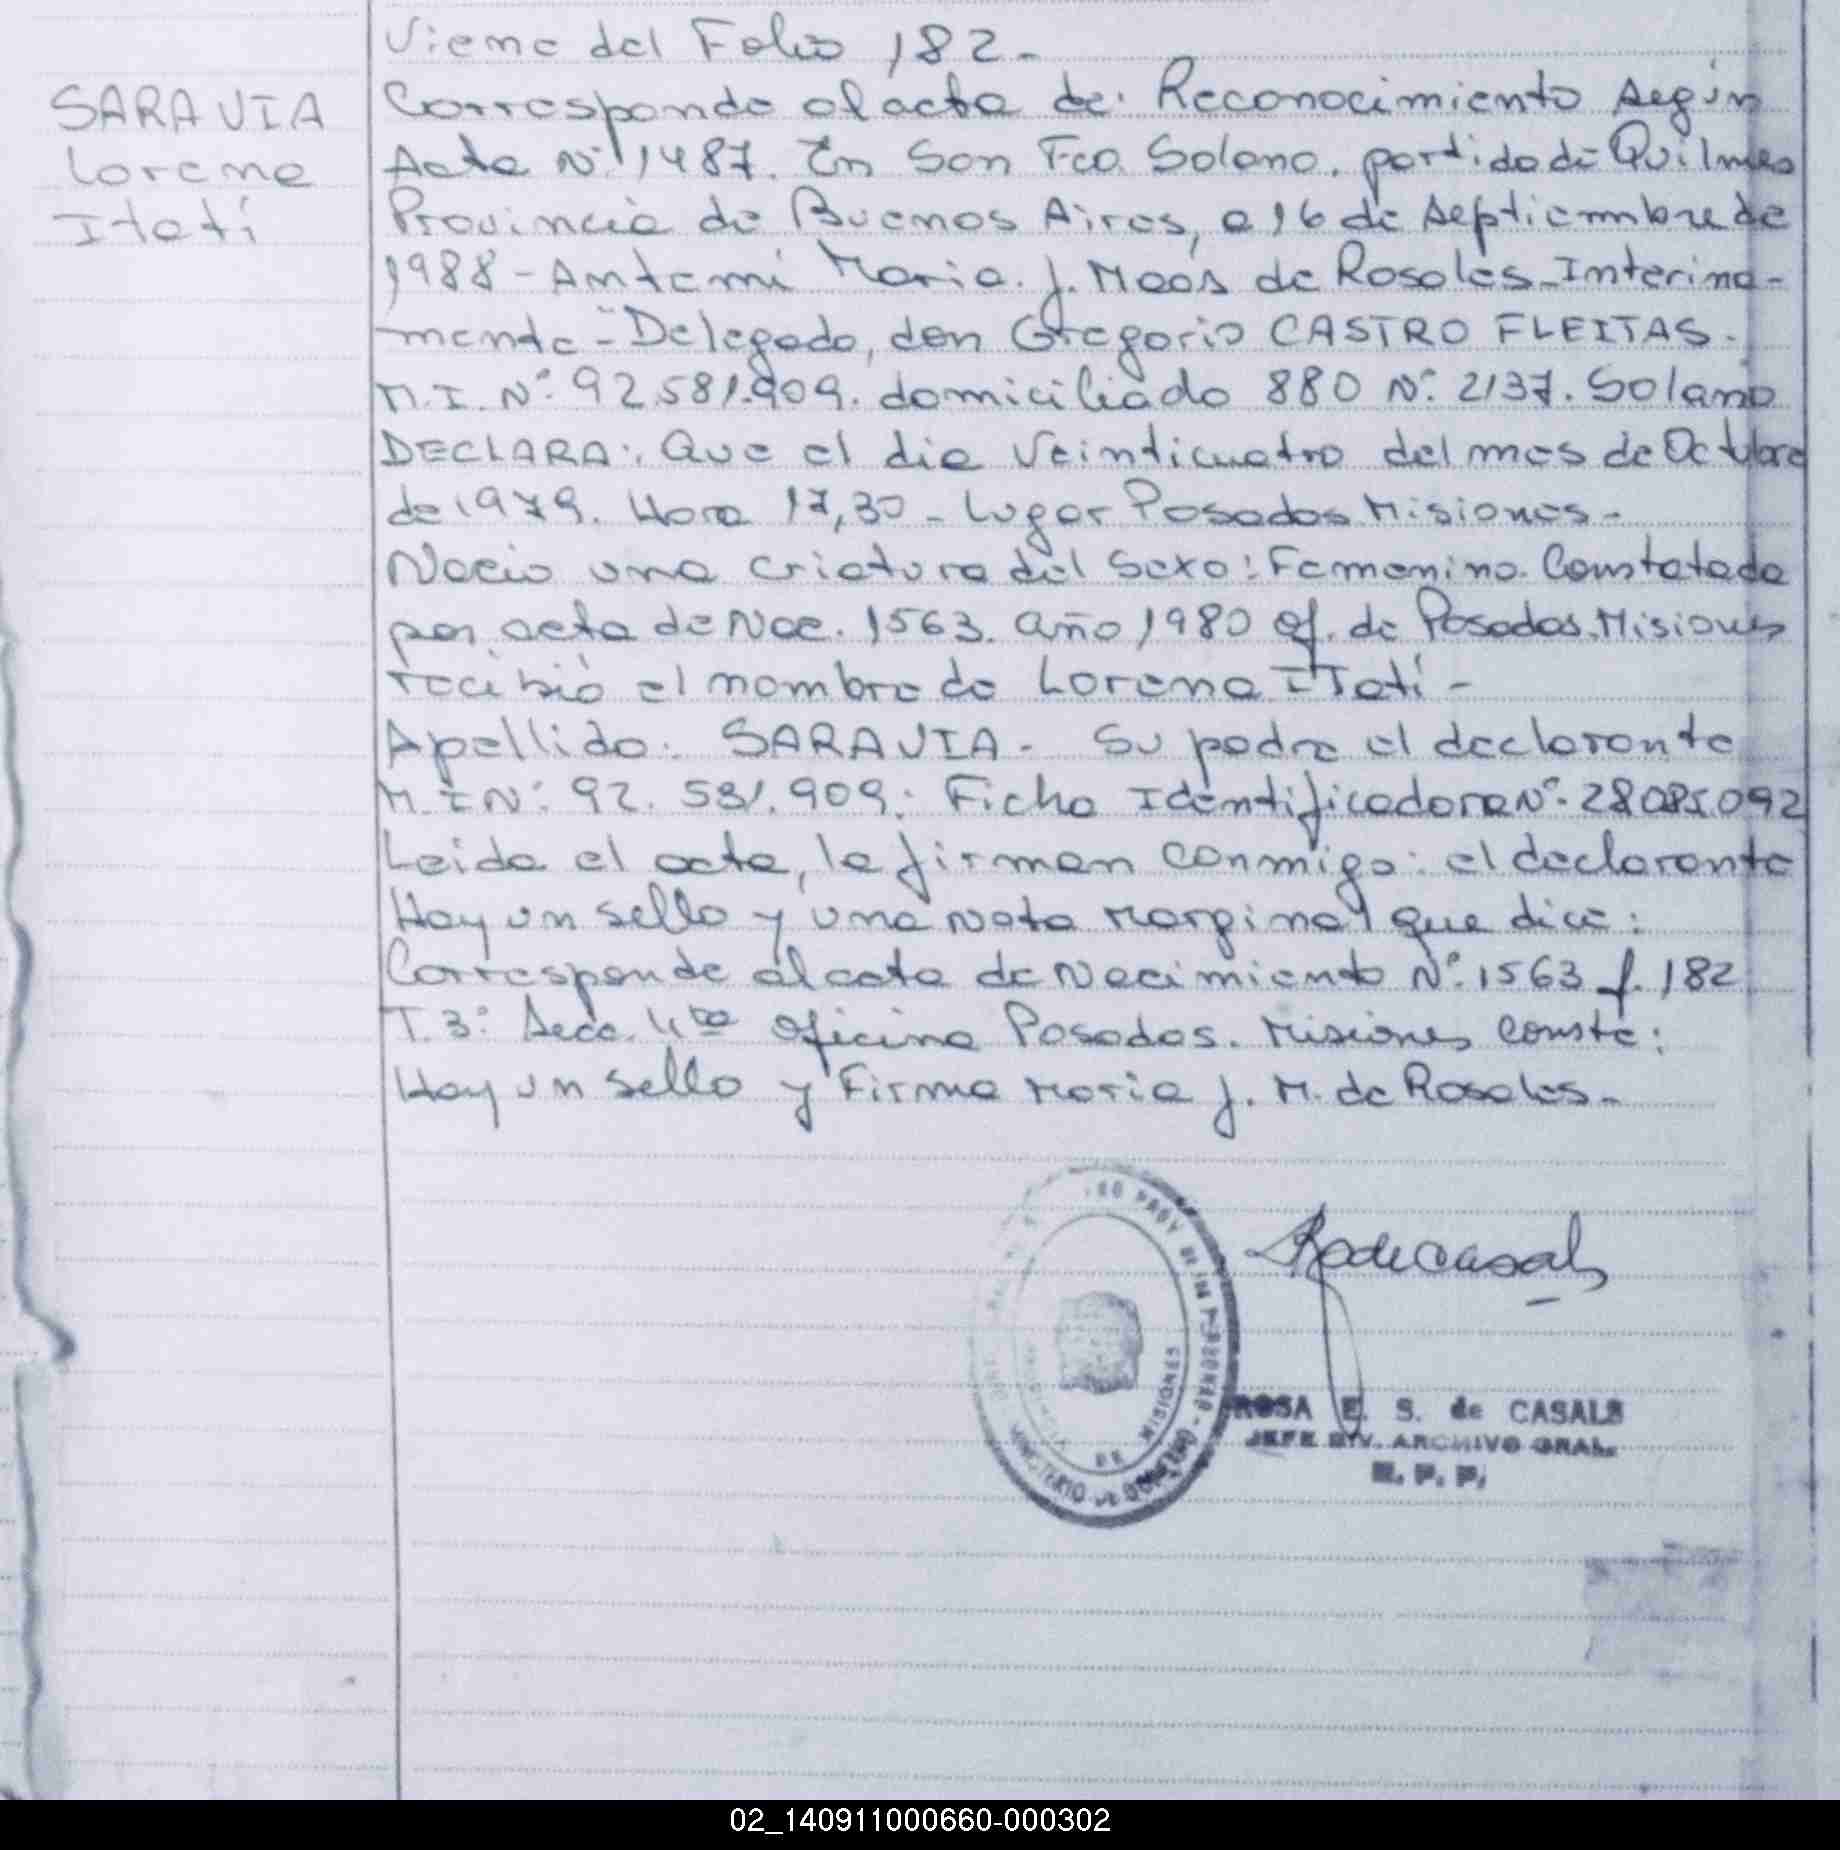 Viene del Folio 182-
SARAVIA
Lorena
Itatí
Corresponde al acta de: Reconocimiento según
Acta Nº 1487. En San Fco. Solano, partido de Quilmes
Provincia de Buenos Aires, a 16 de septiembre de
1988 - Antemi Maria. J. Meos de Rosales - Interina-
mente - Delegado, don Gregorio CASTRO FLEITAS.
M.I. Nº. 92.581.909. domiciliado 880 Nº. 2137. Solano
DECLARA: Que el dia Veinticuatro del mes de Octubre
de 1979. Hora 17,30 - Lugar Posadas Misiones -
Nacio una criatura del Sexo: Femenino. Constatada
por acta de Nac. 1563. año 1980 Of. de Posadas. Misiones
recibió el nombre de Lorena ITatí -
Apellido: SARAVIA - Su padre el declarante
M.I Nº: 92. 581.909: Ficha Identificadora Nº. 28.085.092
Leida el acta, la firman conmigo: el declarante
Hay un sello y una nota marginal que dice:
Corresponde al cata de Nacimiento Nº. 1563 f. 182
T. 3º Secc. 4ta Oficina Posadas. Misiones Conste:
Hay un sello y Firma Maria J. M. de Rosales -
PROV DE LAS PERSONAS
MINISTERIO DE GOBIERNO
DE MISIONES
RdeCasals
ROSA E. S. de CASALS
JEFE DIV. ARCHIVO GRAL.
R. P. P.
02_140911000660-000302